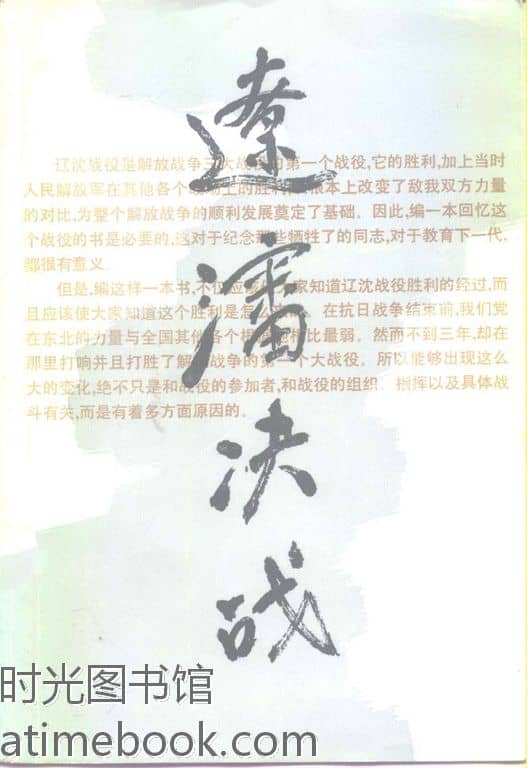 遼瀋决战
辽沈战役是解放战争三大战役的第一个战役,它的胜利,加上当时
人民解放军在其他各个 场上的胜利, 根本上改变了敌我双方力量
的对比,为整个解放战争的顺利发展奠定了基础。因此,编一本回忆这
个战役的书是必要的,这对于纪念那些牺牲了的同志,对于教育下一代,
都很有意义。
但是,编这样一本书,不仅应该 家知道辽沈战役胜利的经过,而
且应该使大家知道这个胜利是怎么 在抗日战争结束前,我们党
在东北的力量与全国其他各个根 比最弱。然而不到三年,却在
那里打响并且打胜了解放战争的第一个大战役。所以能够出现这么
大的变化,绝不只是和战役的参加者,和战役的组织、指挥以及具体战
斗有关,而是有着多方面原因的。
时光图书馆
atimebook.com